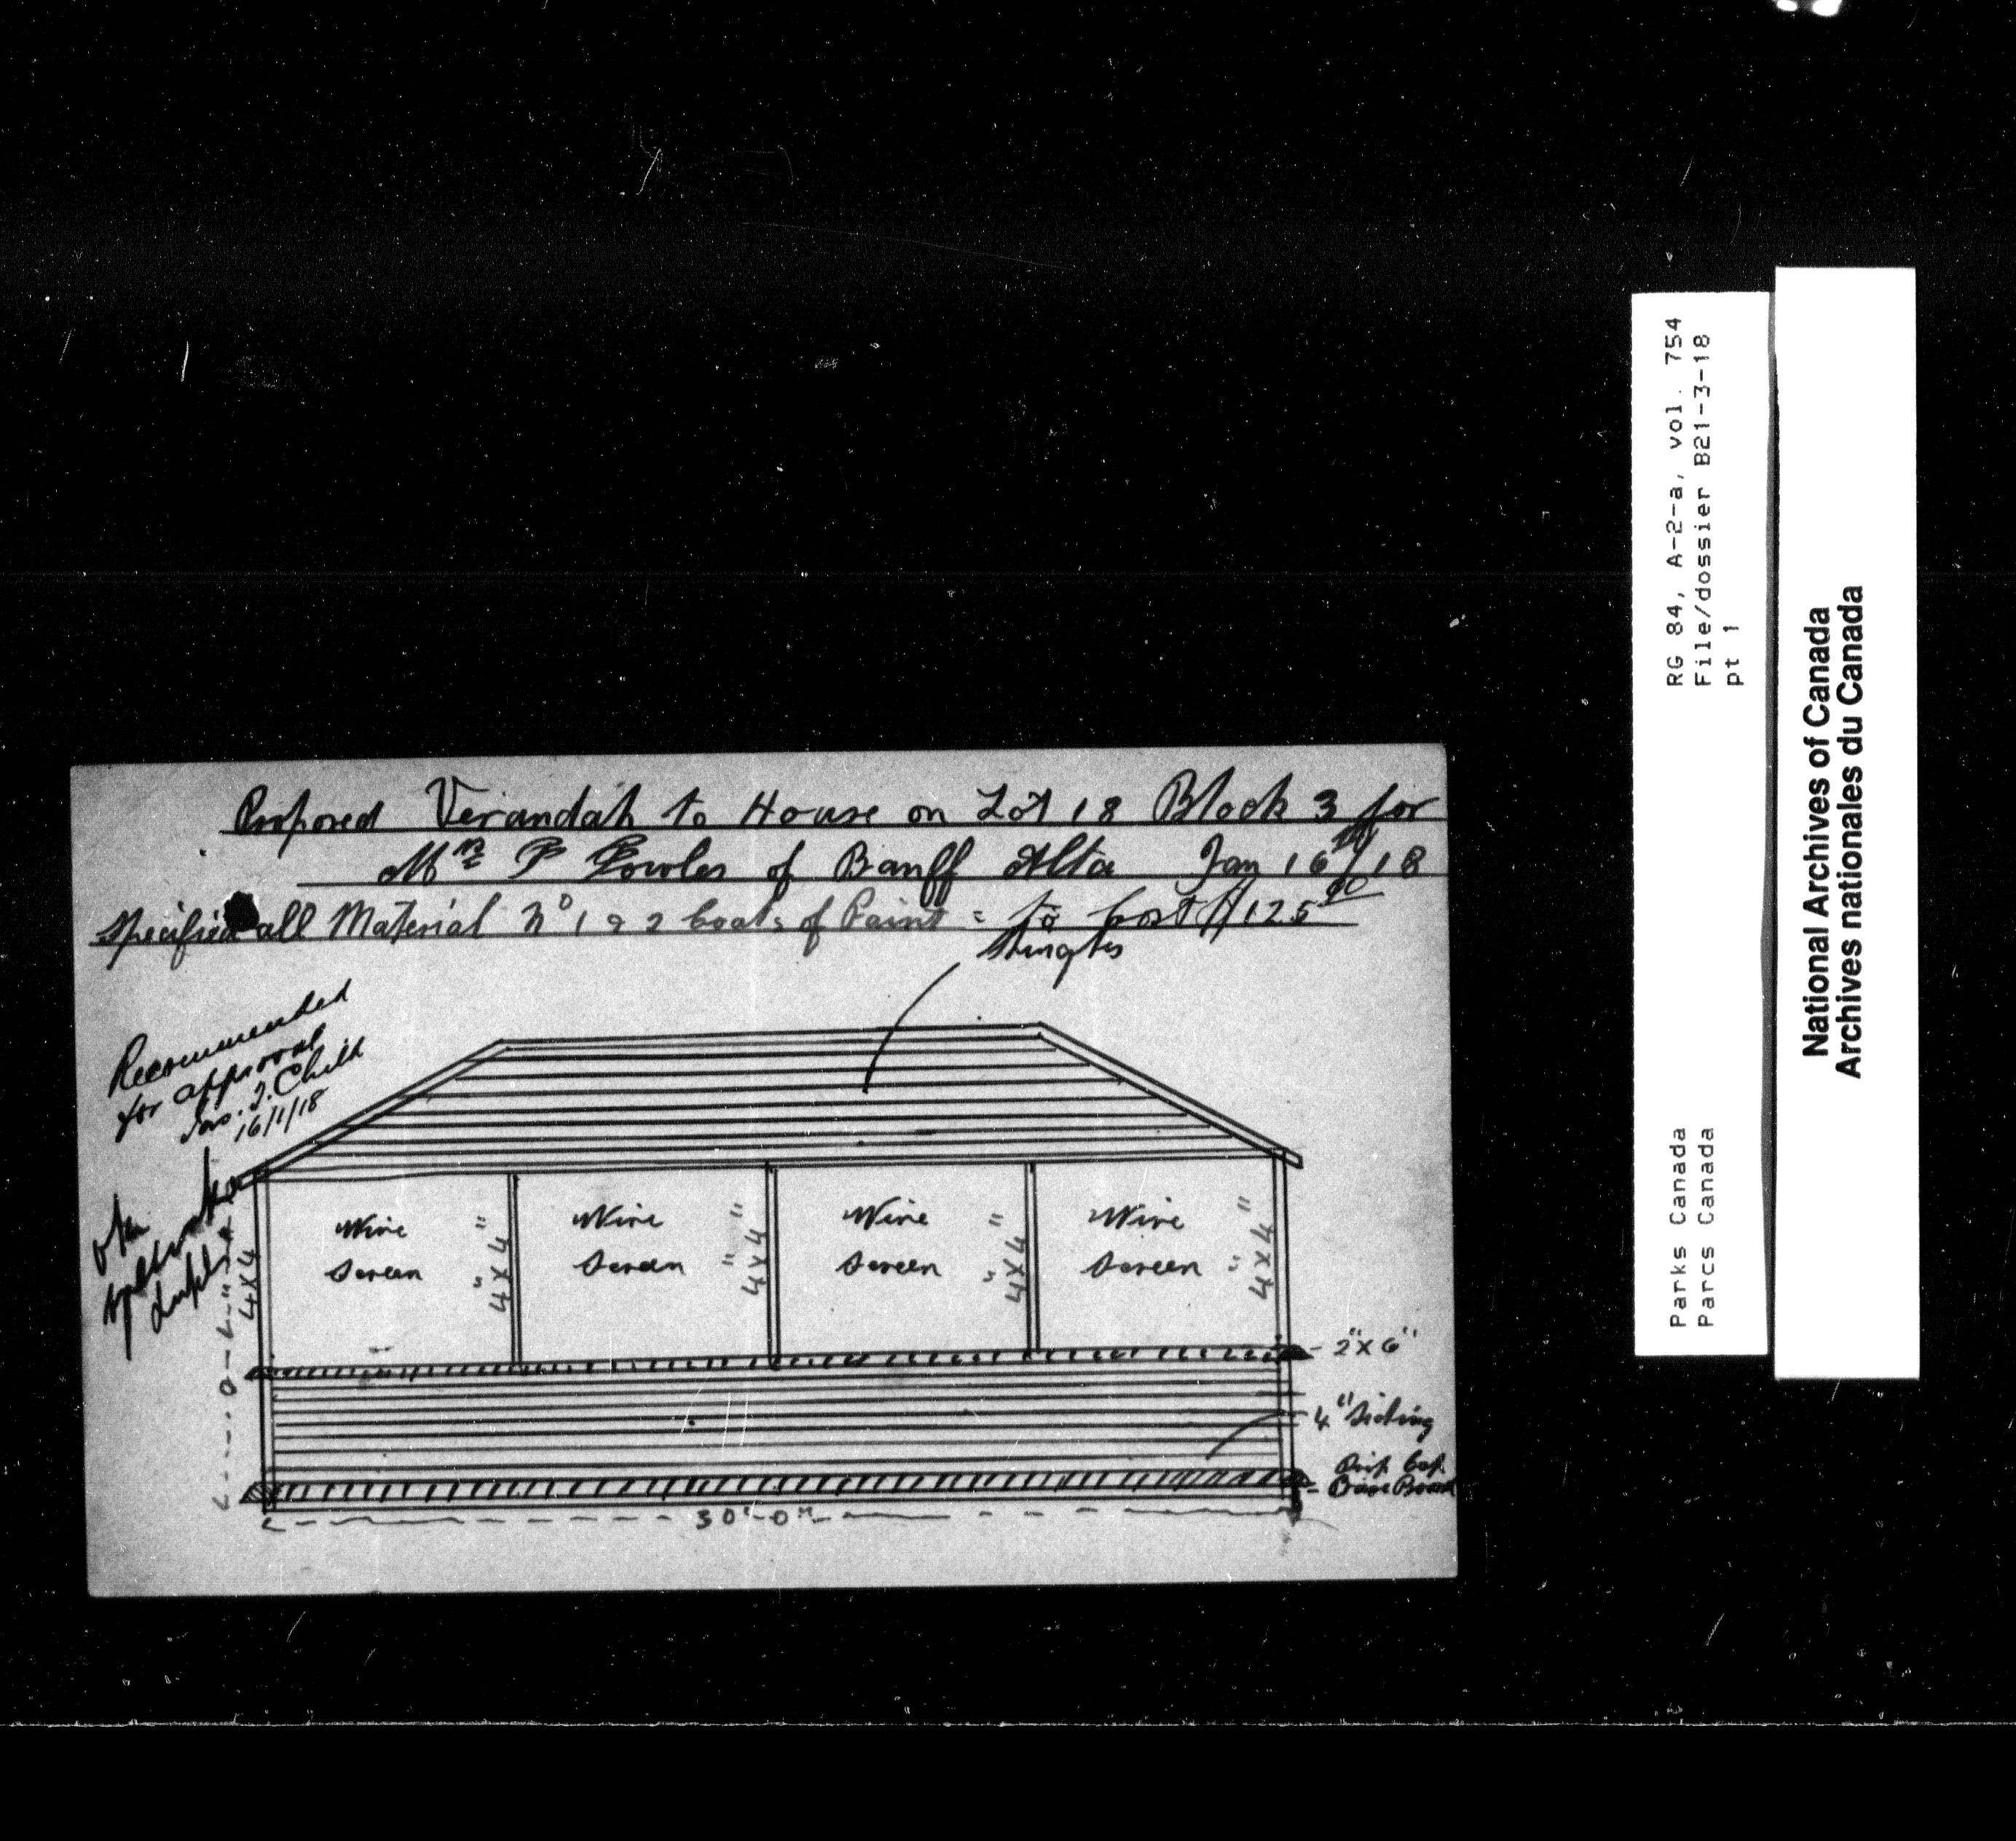 Proposed Verandah to House on Lot 18 Block 3 for
Mr P Fowles of Banff Alta Jan 16th/18
Specified all Material No 1 & 2 Coats of Paint = to Cost $125 00
Shingles
Recommended
for approval
Jas. I. Child
16/1/18
Wire
Screen
4"X4"
Wire
Screen
4"X4"
Wire
Screen
4"X4"
Wire
Screen
4"X4"
4X4
2"X6"
4" Siding
Drip Cap
Base Board
30'-0"
RG 84, A-2-a, vol. 754
File/dossier B21-3-18
pt 1
Parks Canada
Parcs Canada
National Archives of Canada
Archives nationales du Canada